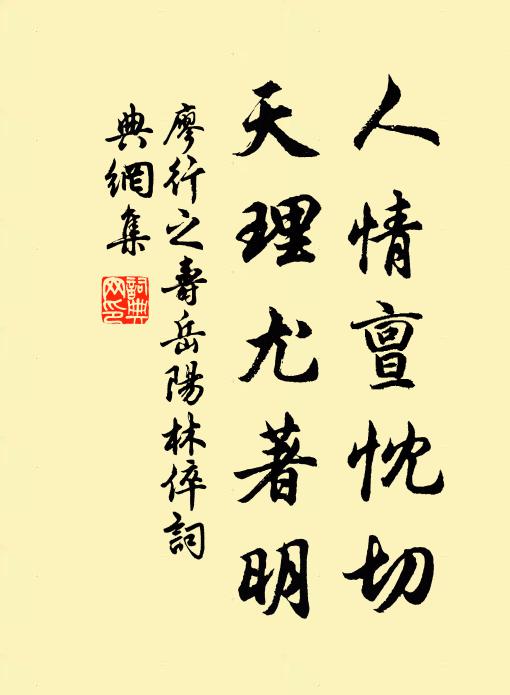 人情亶忱切
天理尤著明
廖行之壽岳陽林倅詞
典網集
詞典
网印